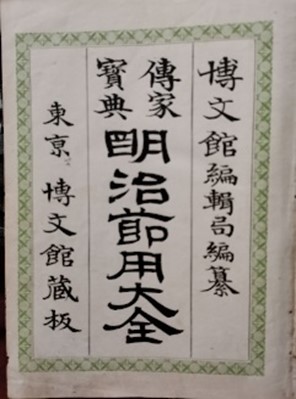 博文館編輯局編纂
傳家
寳典
明治節用大全
東京 博文館蔵板